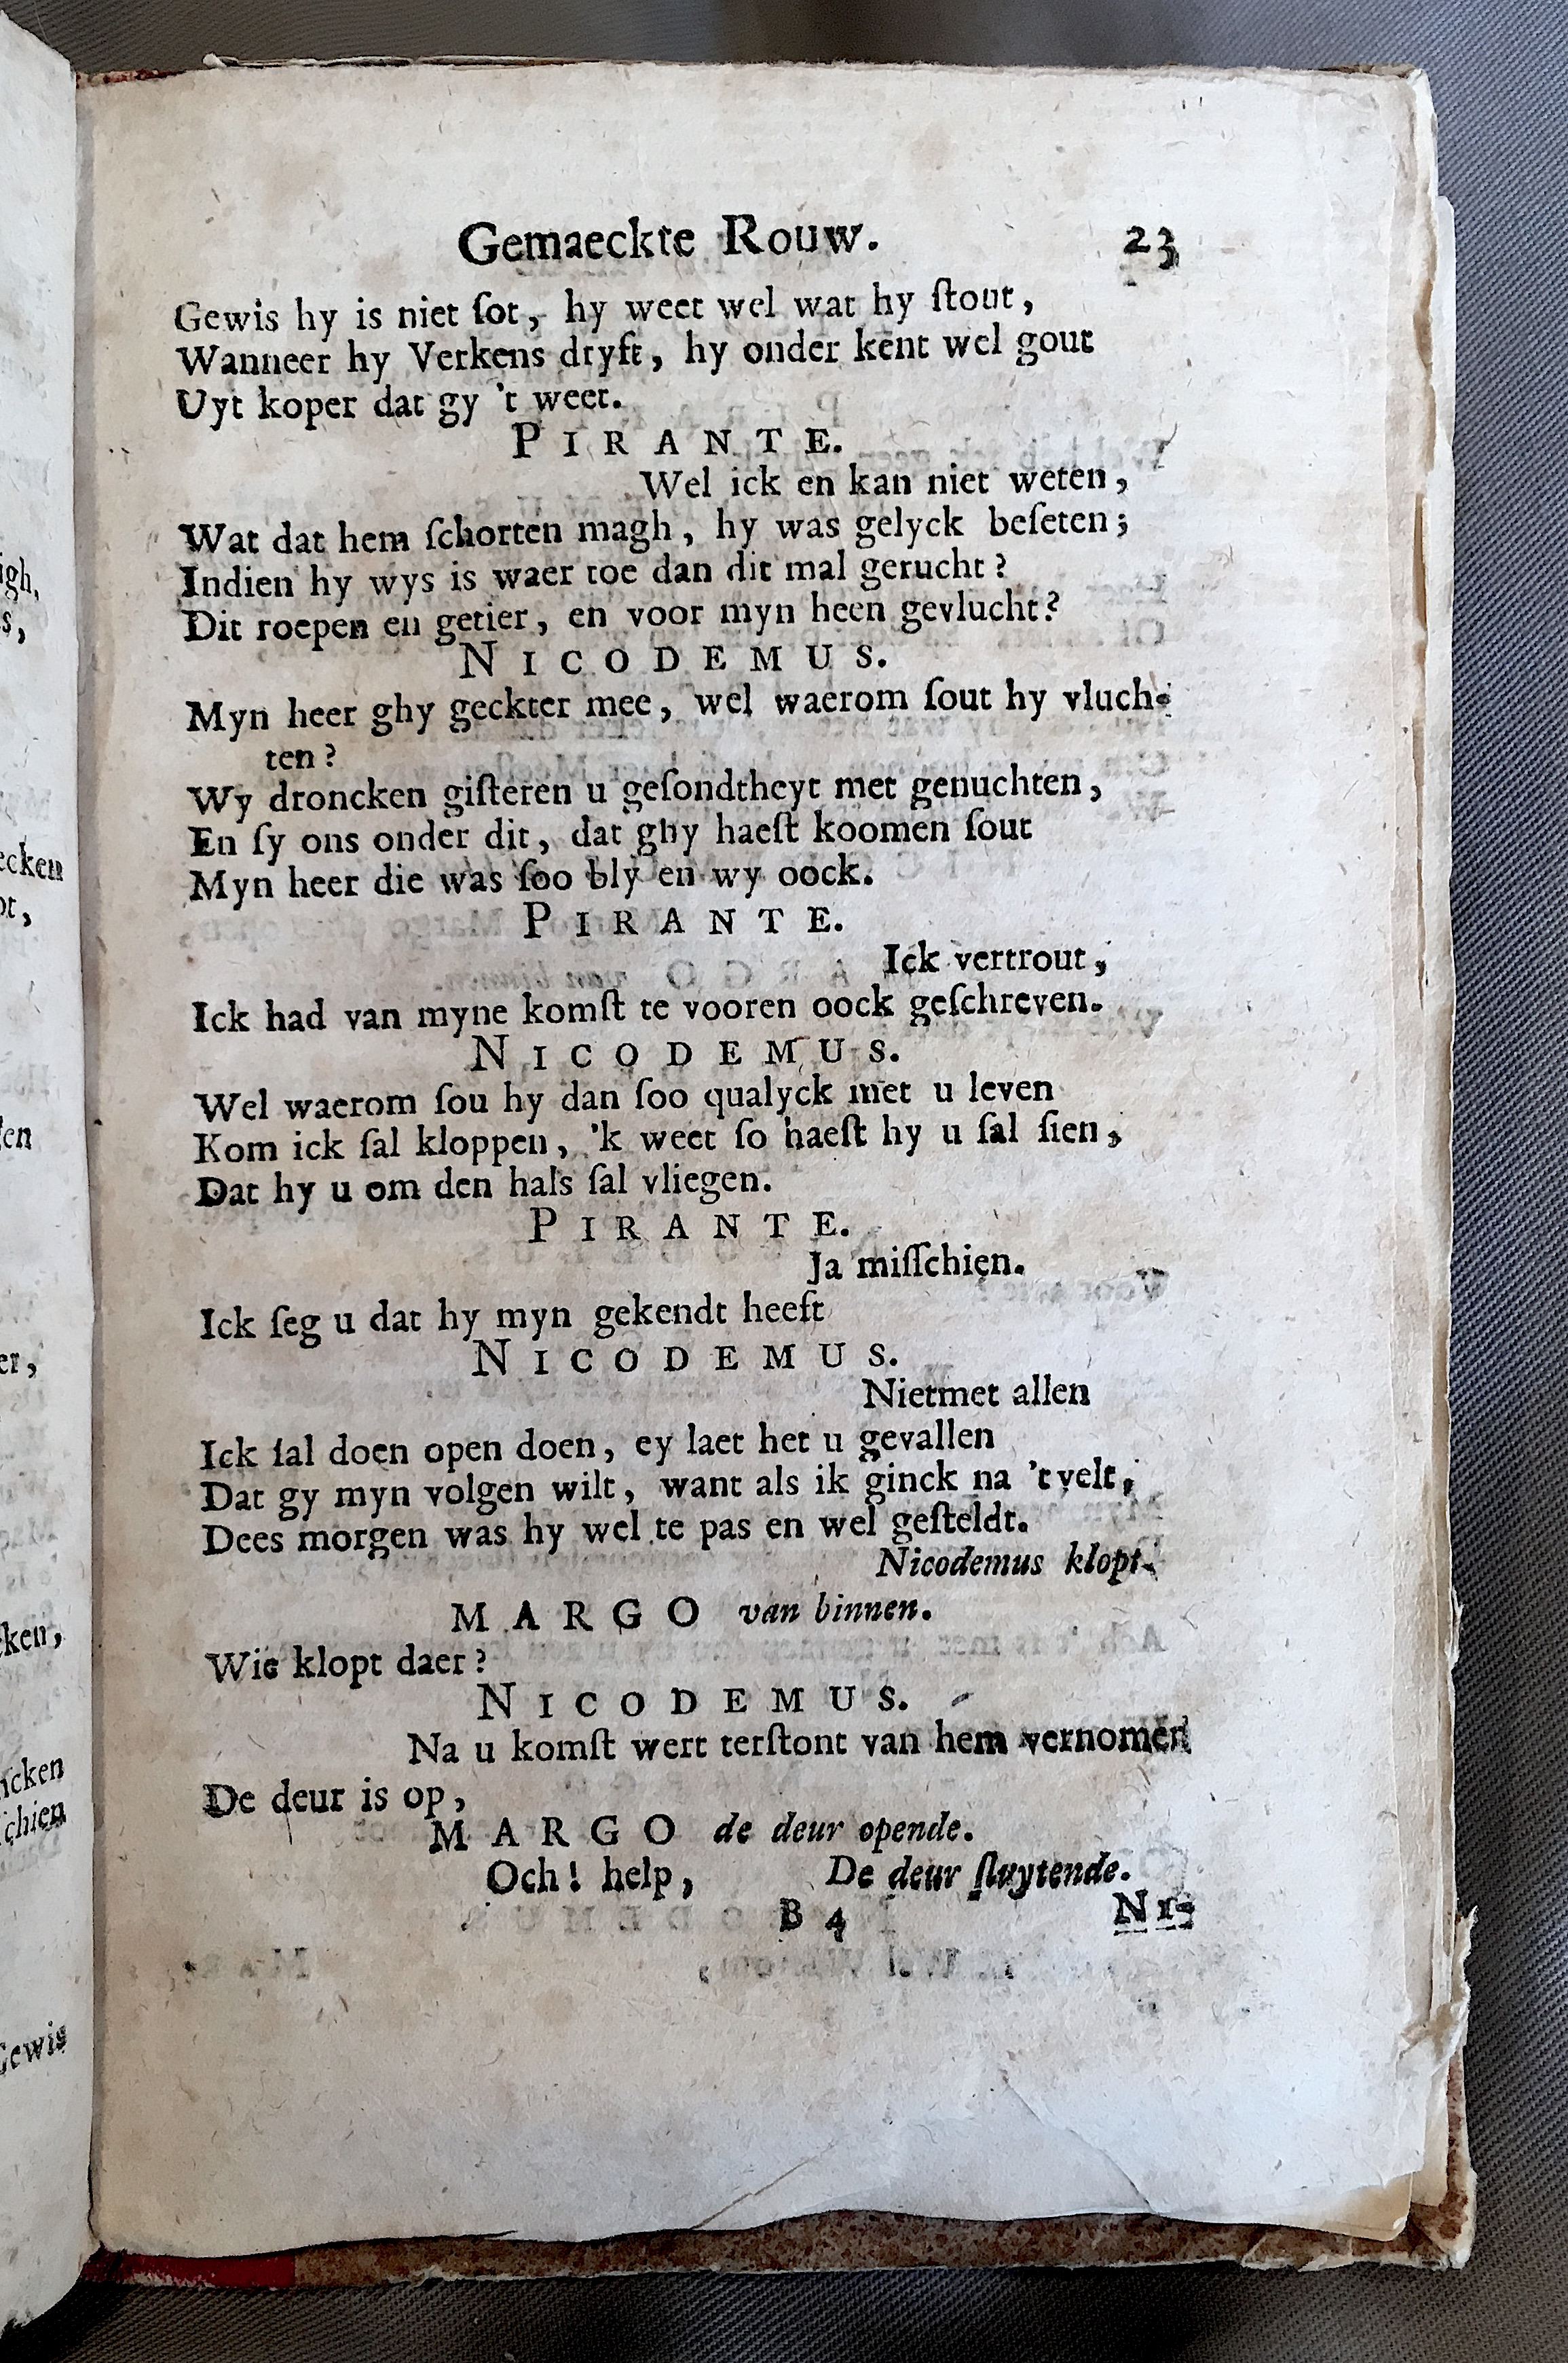 Gemaeckte Rouw. 23
Gewis hy is niet ſot, hy weet wel wat hy ſtout,
Wanneer hy Verkens dryft, hy onder kent wel gout
Uyt koper dat gy 't weet.
PIRANTE.
Wel ick en kan niet weten,
Wat dat hem ſchorten magh, hy was gelyck beſeten;
Indien hy wys is waer toe dan dit mal gerucht?
Dit roepen en getier, en voor myn heen gevlucht?
NICODEMUS.
Myn heer ghy geckter mee, wel waerom ſout hy vluch-
ten?
Wy droncken giſteren u geſondtheyt met genuchten,
En ſy ons onder dit, dat ghy haeſt koomen ſout
Myn heer die was ſoo bly en wy oock.
PIRANTE.
Ick vertrout,
Ick had van myne komſt te vooren oock geſchreven.
NICODEMUS.
Wel waerom ſou hy dan ſoo qualyck met u leven
Kom ick ſal kloppen, 'k weet ſo haeſt hy u ſal ſien,
Dat hy u om den hals ſal vliegen.
PIRANTE.
Ja miſſchien.
Ick ſeg u dat hy myn gekendt heeft
NICODEMUS.
Nietmet allen
Ick ſal doen open doen, ey laet het u gevallen
Dat gy myn volgen wilt, want als ik ginck na 't velt,
Dees morgen was hy wel te pas en wel geſteldt.
Nicodemus klopt.
MARGO van binnen.
Wie klopt daer?
NICODEMUS.
Na u komſt wert terſtont van hem vernomen
De deur is op,
MARGO de deur opende.
Och! help, De deur ſluytende.
B 4 NI-
igh,
s,
ecken
ot,
en
er,
ken,
ncken
chien
Gewis